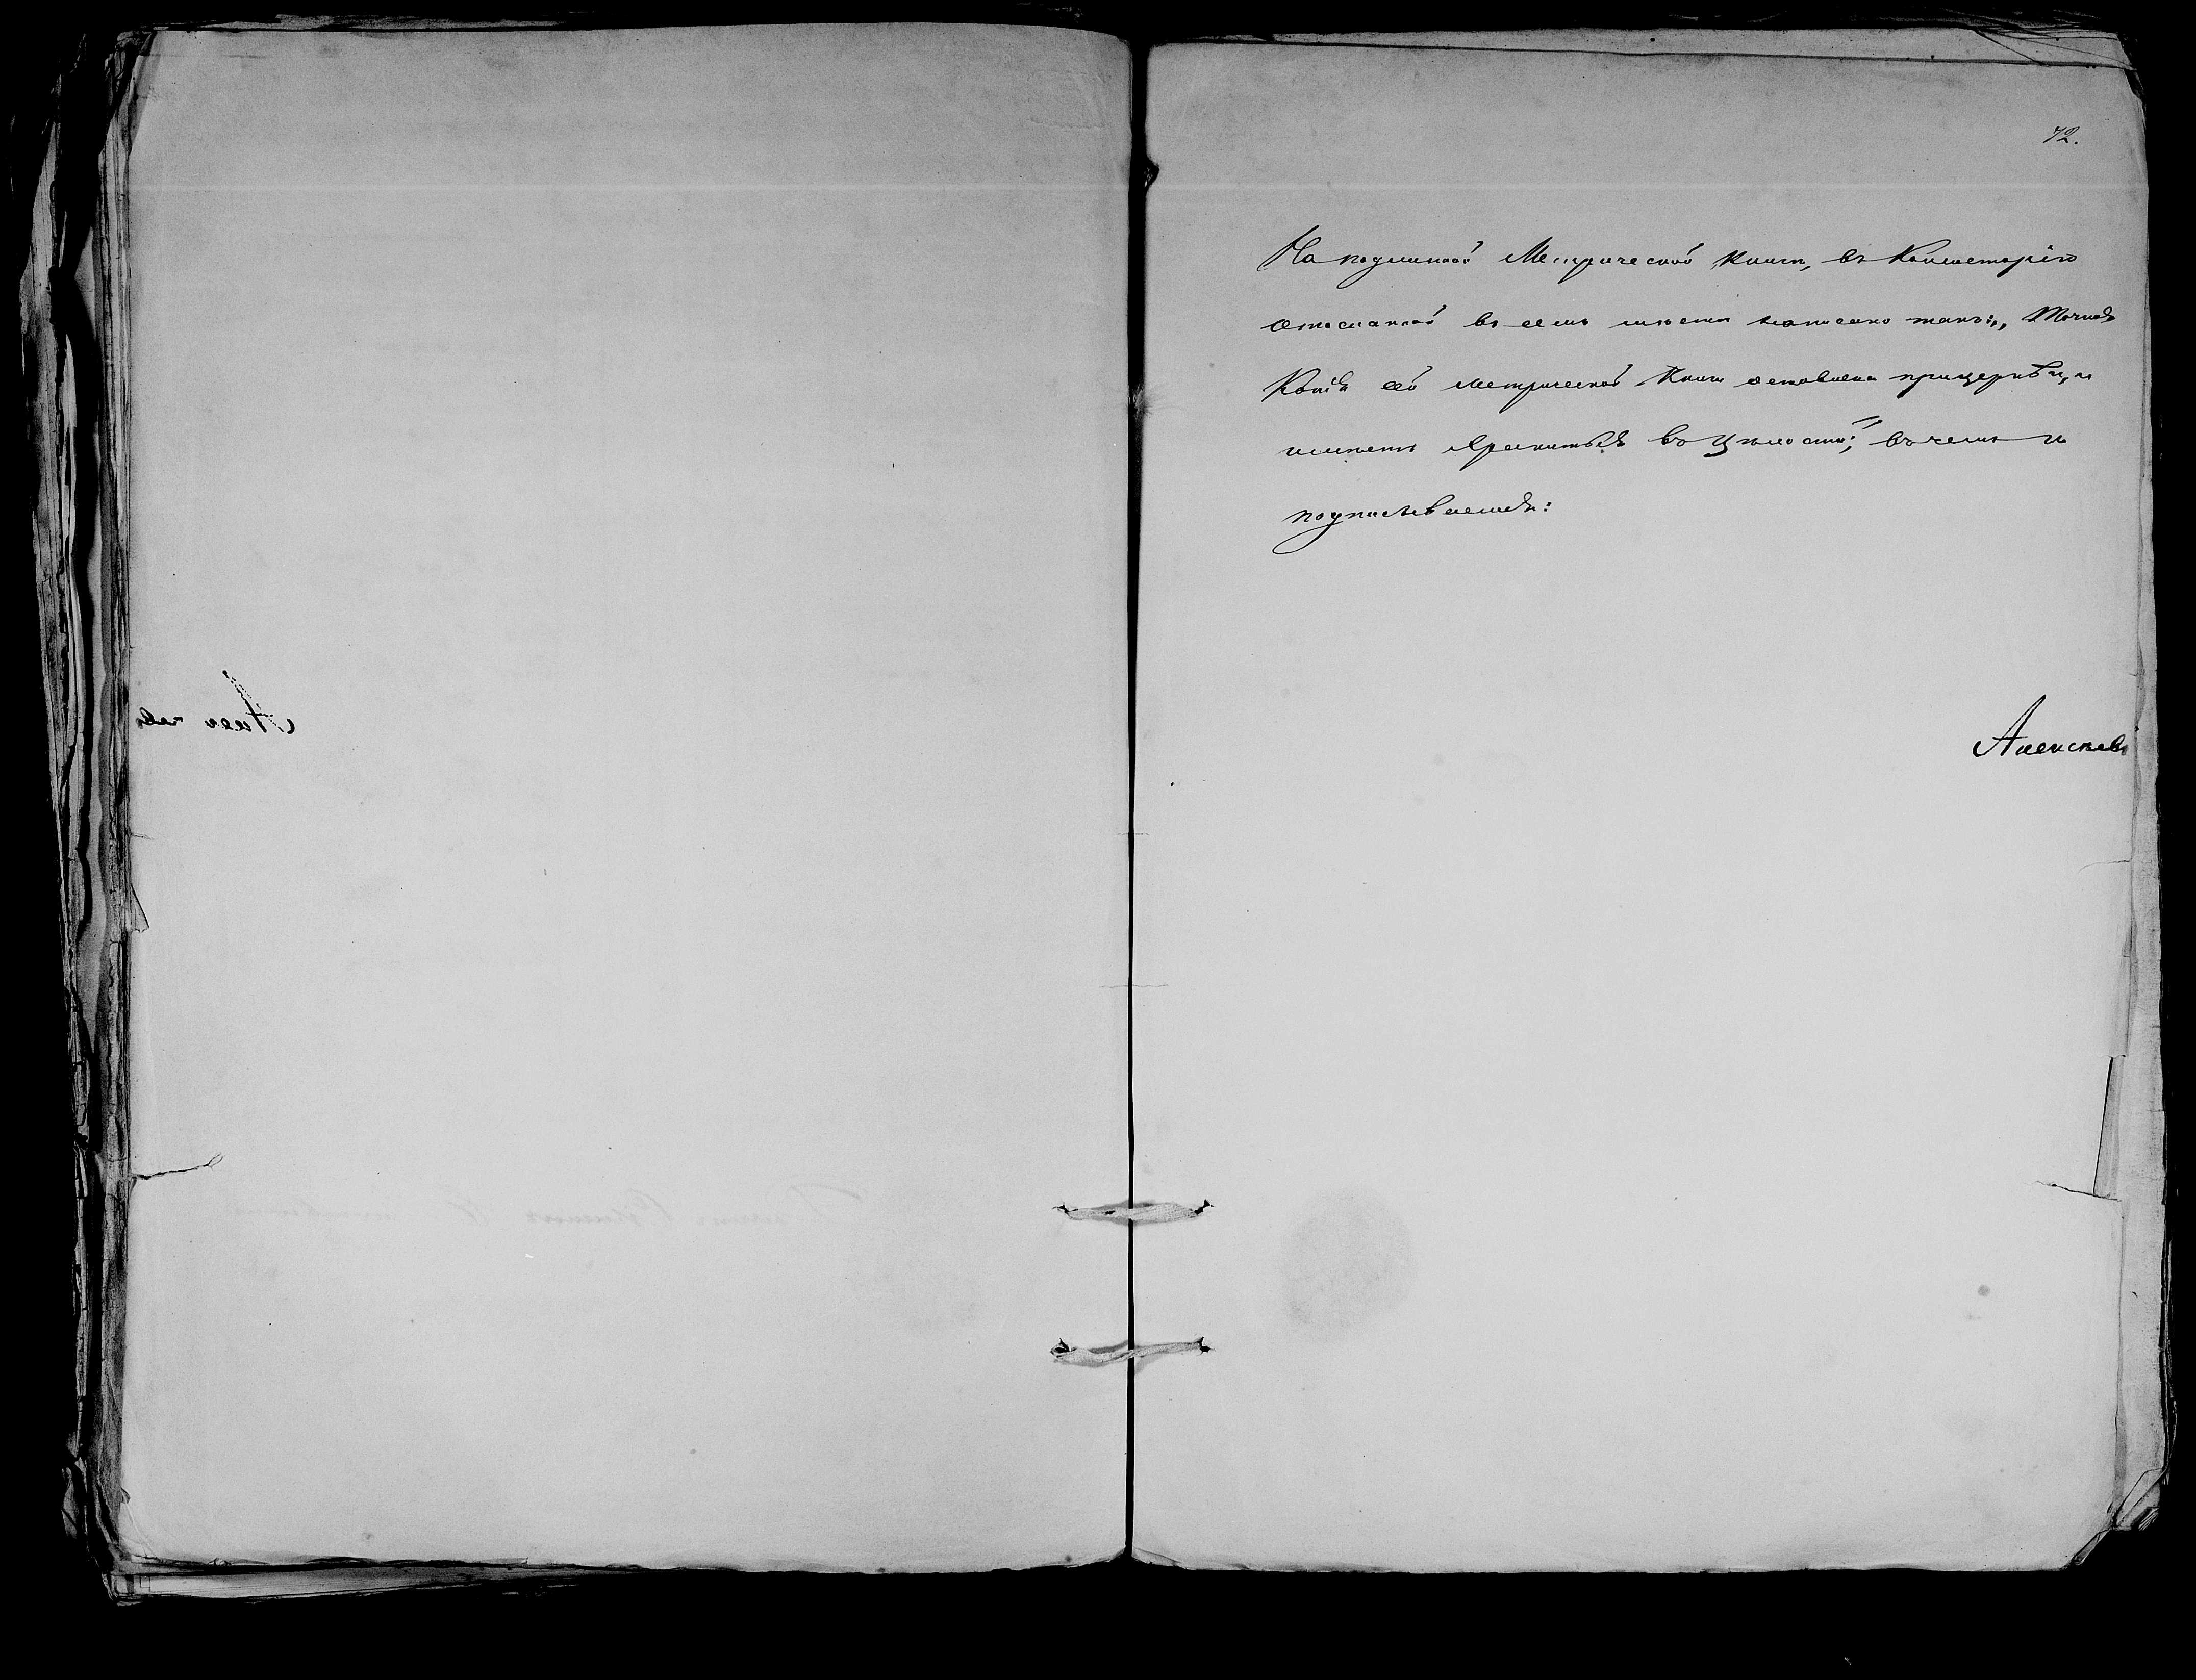 72.
На подлинной Метрической Книги, въ Консисторiю
отосланной въ семъ мѣстѣ написано такъ:„ Точная
Копiя сей метрической Книги оставлена при церкви, и
имѣетъ хранится въ цѣлости;" въ чемъ и
подписываемся:
Алексѣевъ